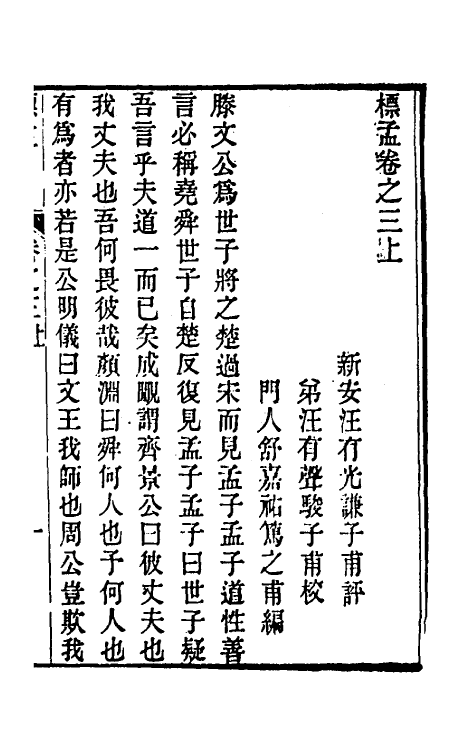 標孟卷之三上
新安汪有光謙子甫評
弟汪有聲駿子甫校
門人舒嘉祐篤之甫編
滕文公爲世子將之楚過宋而見孟子孟子道性善
言必稱堯舜世子自楚反復見孟子孟子曰世子疑
吾言乎夫道一而已矣成覵謂齊景公曰彼丈夫也
我丈夫也吾何畏彼哉顏淵曰舜何人也予何人也
有爲者亦若是公明儀曰文王我師也周公豈欺我
卷之三上 一